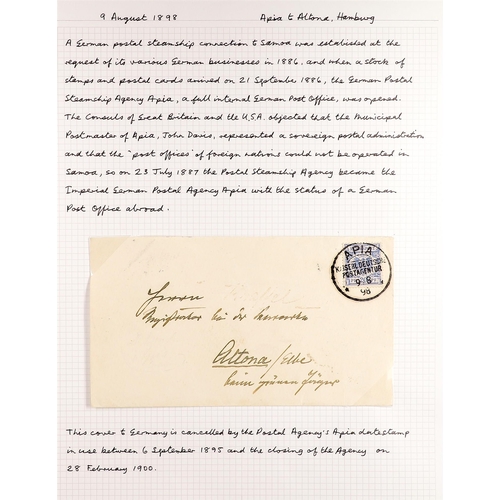 9 August 1898 Apia to Altona, Hamburg
A German postal steamship connection to Samoa was established at the
request of its various German businesses in 1886, and when a stock of
stamps and postal cards arrived on 21 September 1886, the German Postal
Steamship Agency Apia, a full internal German Post Office, was opened.
The Consuls of Great Britain and the U.S.A. objected that the Municipal
Postmaster of Apia, John Davis, represented a sovereign postal administration
and that the "post offices" of foreign nations could not be operated in
Samoa, so on 23 July 1887 the Postal Steamship Agency became the
Imperial German Postal Agency Apia with the status of a German
Post Office abroad.
APIA
KAISERL. DEUTSCHE
POSTAGENTUR
9 8
98
Herrn
bei der
Altona/Elbe
beim grünen Jäger
This cover to Germany is cancelled by the Postal Agency's Apia datestamp
in use between 6 September 1895 and the closing of the Agency on
28 February 1900.